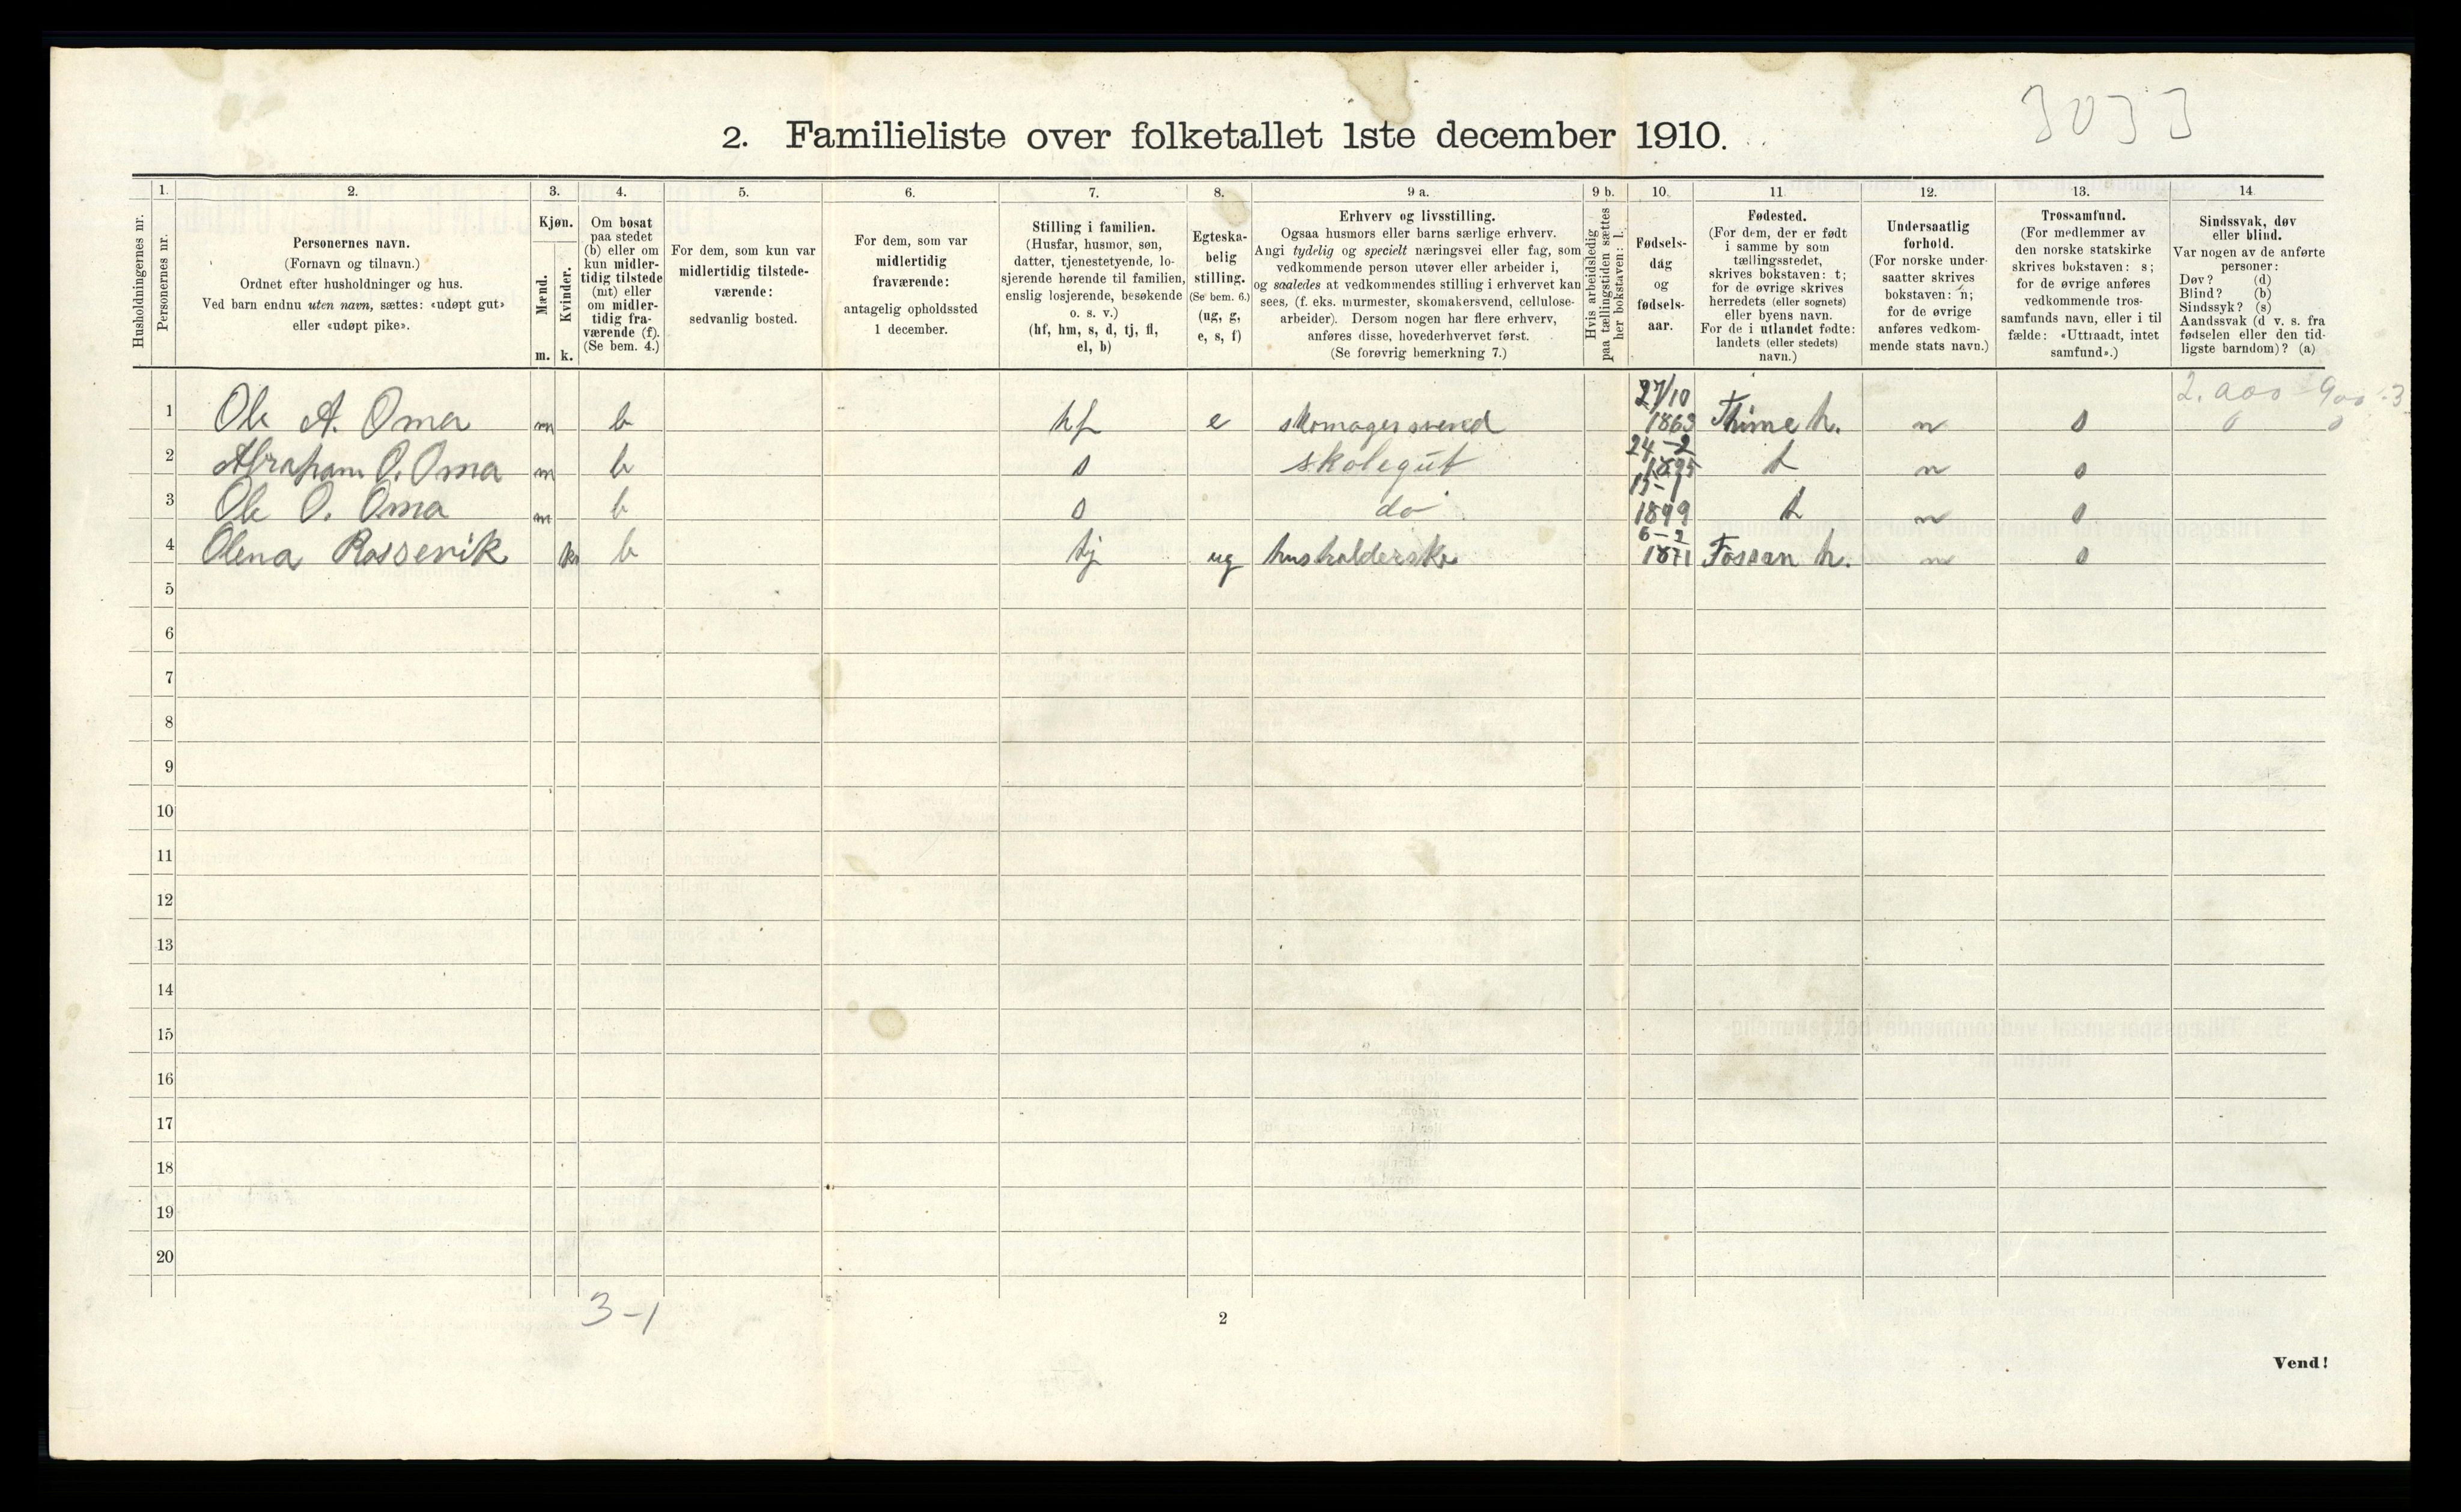 3033
2. Familieliste over folketallet 1ste december 1910.
Husholdningernes nr.
1.
Personernes nr.
2.
Personernes navn.
(Fornavn og tilnavn.)
Ordnet efter husholdninger og hus.
Ved barn endnu uten navn, sættes: «udøpt gut»
eller «udøpt pike».
3.
Kjøn.
Mænd.
Kvinder.
m. k.
4.
Om bosat
paa stedet
(b) eller om
kun midler-
tidig tilstede
(mt) eller
om midler-
tidig fra-
værende (f).
(Se bem. 4.)
5.
For dem, som kun var
midlertidig tilstede-
værende:
sedvanlig bosted.
6.
For dem, som var
midlertidig
fraværende:
antagelig opholdssted
1 december.
7.
Stilling i familien.
(Husfar, husmor, søn,
datter, tjenestetyende, lo-
sjerende hørende til familien,
enslig losjerende, besøkende
o. s. v.)
(hf, hm, s, d, tj, fl,
el, b)
8.
Egteska-
belig
stilling.
(Se bem. 6.)
(ug, g,
e, s, f)
9 a.
Erhverv og livsstilling.
Ogsaa husmors eller barns særlige erhverv.
Angi tydelig og specielt næringsvei eller fag, som
vedkommende person utøver eller arbeider i,
og saaledes at vedkommendes stilling i erhvervet kan
sees, (f. eks. murmester, skomakersvend, cellulose-
arbeider). Dersom nogen har flere erhverv,
anføres disse, hovederhvervet først.
(Se forøvrig bemerkning 7.)
9 b.
Hvis arbeidsledig
paa tællingstiden sættes
her bokstaven: l.
10.
Fødsels-
dag
og
fødsels-
aar.
11.
Fødested.
(For dem, der er født
i samme by som
tællingsstedet,
skrives bokstaven: t;
for de øvrige skrives
herredets (eller sognets)
eller byens navn.
For de i utlandet fødte:
landets (eller stedets)
navn.)
12.
Undersaatlig
forhold.
(For norske under-
saatter skrives
bokstaven: n;
for de øvrige
anføres vedkom-
mende stats navn.)
13.
Trossamfund.
(For medlemmer av
den norske statskirke
skrives bokstaven: s;
for de øvrige anføres
vedkommende tros-
samfunds navn, eller i til
fælde: «Uttraadt, intet
samfund».)
14
Sindssvak, døv
eller blind.
Var nogen av de anførte
personer:
Døv? (d)
Blind? (b)
Sindssyk? (s)
Aandssvak (d v. s. fra
fødselen eller den tid-
ligste barndom)? (a)
1 Ole A. Oma m b hf e skomagersvend 27/10 1863 Thime h. n s
2 Abraham O. Oma m b s skolegut 24-2 1895 t n s
3 Ole O. Oma m b s do 15-1 1899 t n s
4 Olena Rossevik k b tj ug husholderske 6-2 1871 Fossan h. n s
5
6
7
8
9
10
11
12
13
14
15
16
17
18
19
20
3-1
2
Vend!